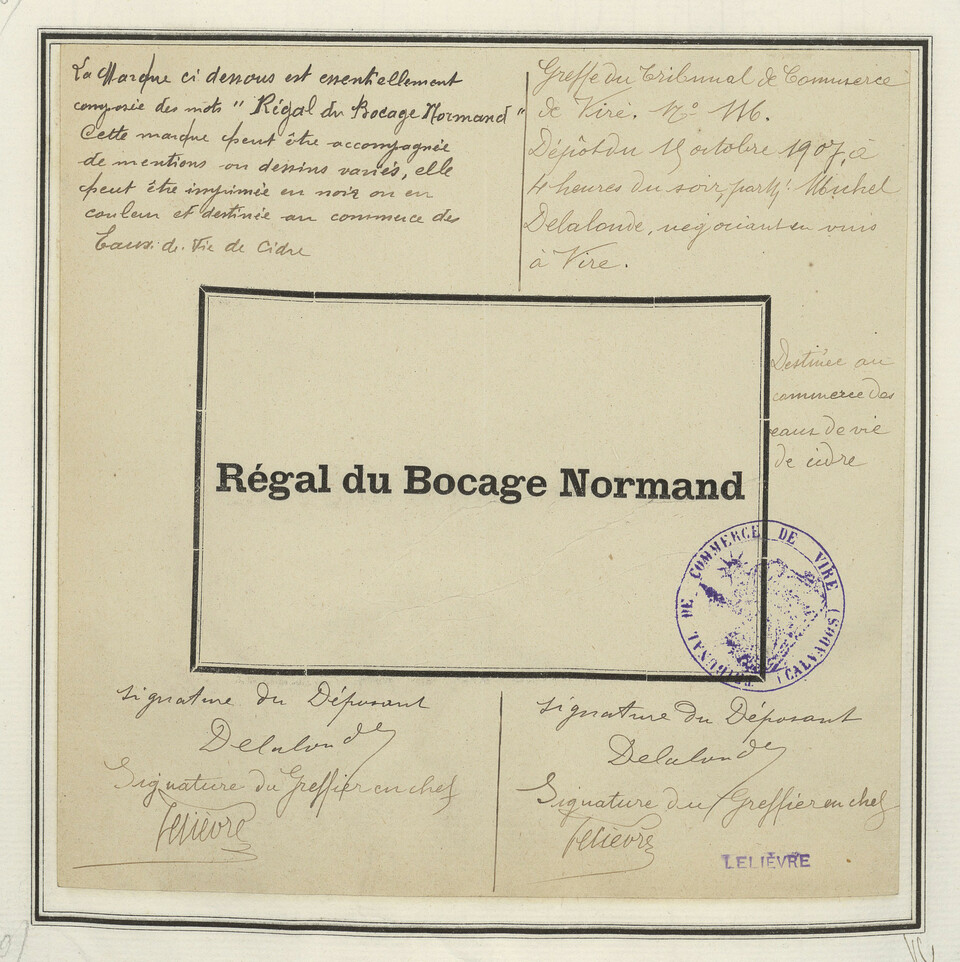 La Marque ci dessous est essentiellement
composée des mots " Régal du Bocage Normand "
Cette marque peut être accompagnée
de mentions ou dessins variés, elle
peut être imprimée en noir ou en
couleur et destinée au commerce des
Eaux-de-Vie de Cidre
Greffe du Tribunal de Commerce
de Vire. No 116.
Dépôt du 15 octobre 1907, à
4 heures du soir, par Mr Michel
Delalonde, négociant en vins
à Vire.
Destinée au
commerce des
eaux de vie
de cidre
Régal du Bocage Normand
TRIBUNAL DE COMMERCE DE VIRE (CALVADOS)
Signature du Déposant
Delalonde
Signature du Greffier en chef
Lelièvre
Signature du Déposant
Delalonde
Signature du Greffier en chef
Lelièvre
LELIÈVRE